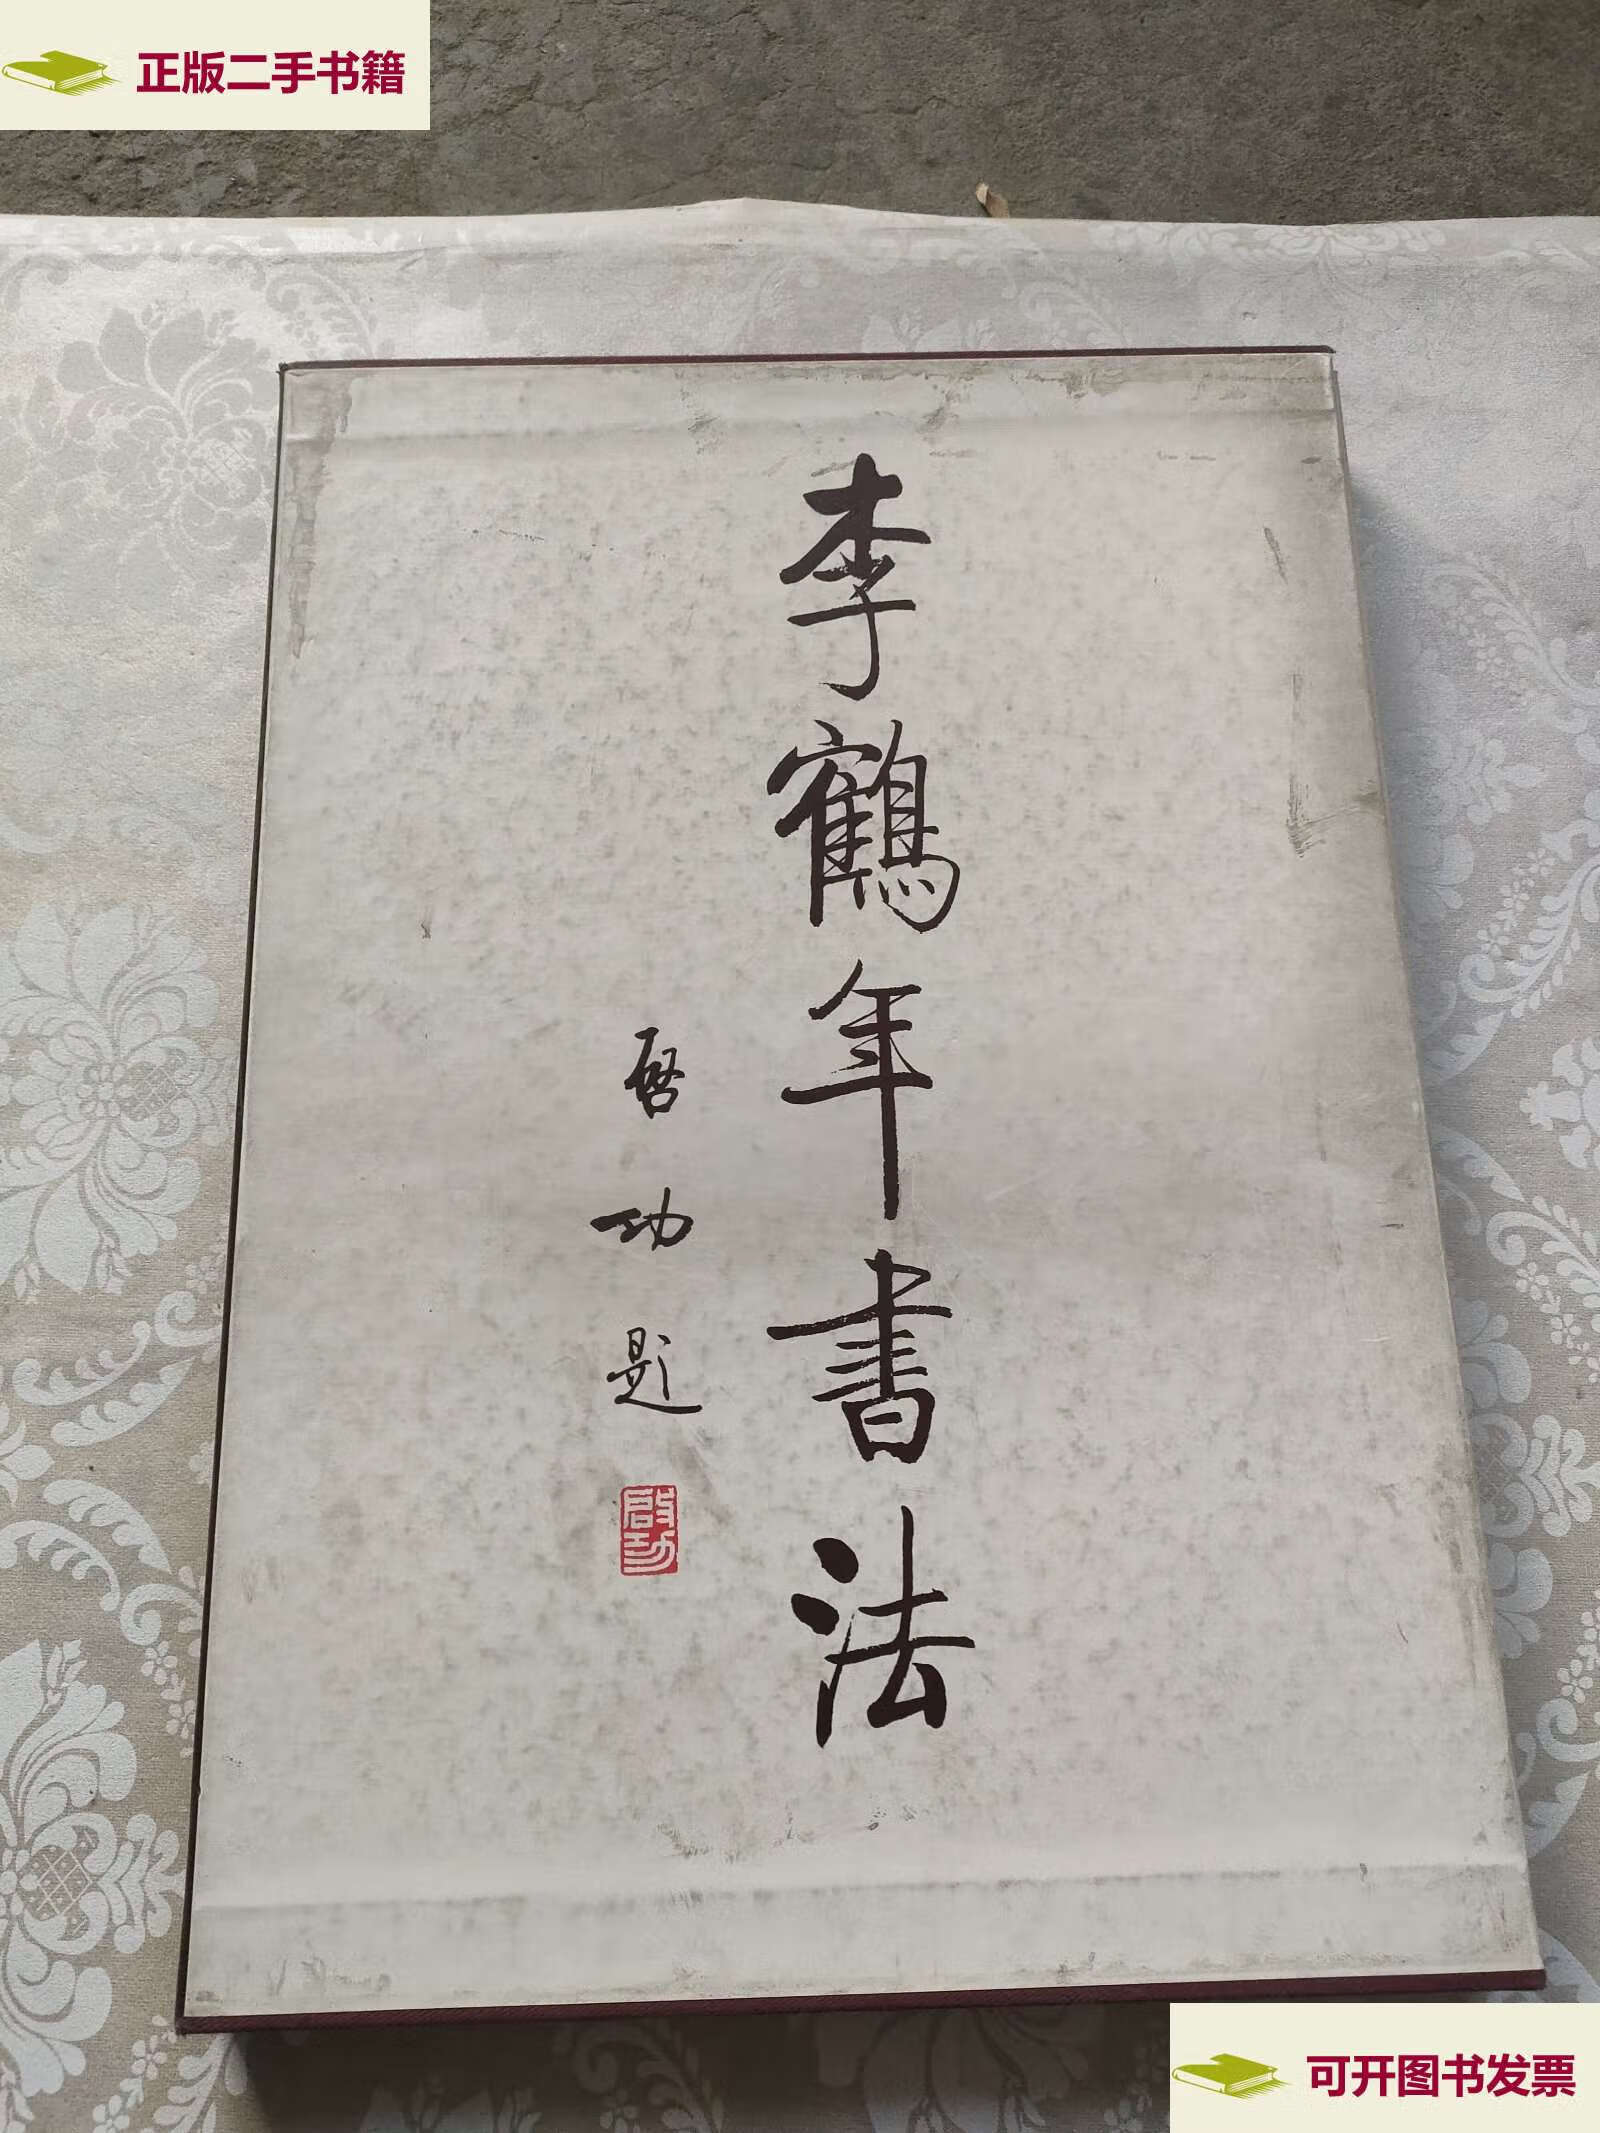 正版二手书籍
李鶴年書法
启功题
啟功
可开图书发票